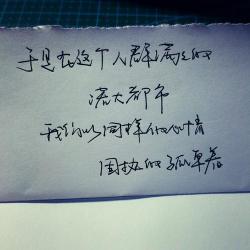 于是在这个人群满溢的
诺大都市
我们以同样的心情
固执的孤单着